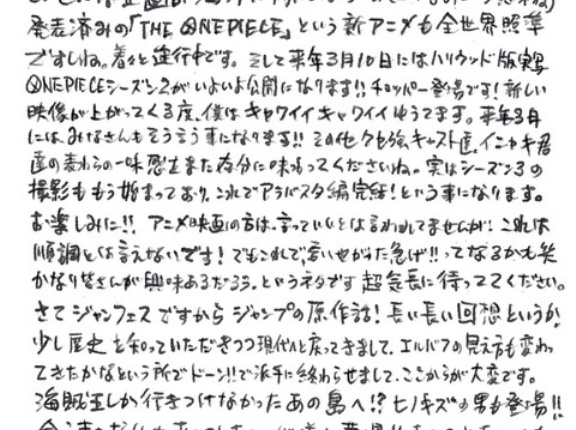 発表済みの「THE ONEPIECE」という新アニメも全世界照準
ですしね。着々と進行中です。そして来年3月10日にはハリウッド版実写
ONEPIECEシーズン2がいよいよ公開になります!!チョッパー登場です!新しい
映像が上がってくる度、僕はキャワイイキャワイイゆうてます。来年3月
には、みなさんもそう言う事になります!!その他クセ強キャスト達、イニャキ君
達の麦わらの一味感をまた存分に味わってくださいね。実はシーズン3の
撮影ももう始まっており、これでアラバスタ編完結!という事になります。
お楽しみに!!アニメ映画の方は、言っていいとは言われてませんが、これは
順調とは言えないです!でもこれで、言いやがった急げ!!ってなるかも笑
かなり皆さんが興味あるだろう、というネタです 超気長に待っててください。
さてジャンフェスですからジャンプの原作話!長い長い回想というか
少し歴史を知っていただきつつ現代へと戻ってきまして、エルバフの見え方も変わっ
てきたかなという所でドーン!!で派手に終わらせまして、ここからが大変です。
海賊王しか行きつけなかったあの島へ!?ヒノキズの男も登場!!